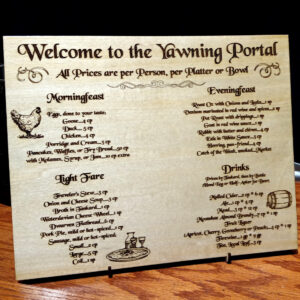 Welcome to the Yawning Portal
All Prices are per Person, per Platter or Bowl
Morningfeast
Eggs, done to your taste.
Goose...4 cp
Duck...5 cp
Chicken...4 cp
Porridge and Cream...5 cp
Pancakes, Waffles, or Fry Bread...
with Molasses, Syrup, or Jam...10 cp extra
Light Fare
Traveler's Stew...5 cp
Onion and Cheese Soup...
Broth in Tankard...
Waterdavian Cheese Wheel...
Dwarven Flatbread...6 cp
Pork Pie, mild or hot-spiced...
Sausage, mild or hot-spiced...
Small...2 cp
Large...5 cp
Coil...1 sp
Eveningfeast
Roast Ox with Onions and Leeks...
Venison marinated in red wine and spices...
Pot Roast with drippings...
Goat in red wine sauce...
Rabbit with butter and chives...
Eels in White Sauce...
Herring, pan-fried...
Catch of the Week, smoked...Market
Drinks
Prices by Tankard, then by Bottle
Mulled Cider...2 cp & 6 cp
Ale...
Mead...5 cp &
Moonshae Almond Brandy...7 cp &
Fruit Liquor
(Apricot, Cherry, Gooseberry, or Peach)...
Fine Wine...